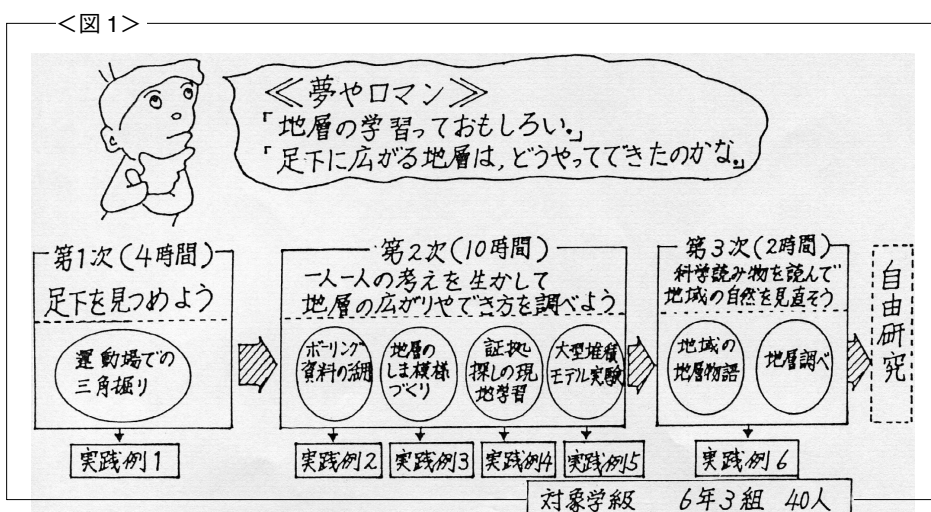 <図1>
≪夢やロマン≫
「地層の学習っておもしろい。」
「足下に広がる地層は,どうやってできたのかな。」
第1次(4時間)
足下を見つめよう
運動場での
三角掘り
実践例1
第2次(10時間)
一人一人の考えを生かして
地層の広がりやでき方を調べよう
ボーリング
資料の活用
地層の
しま模様
づくり
証拠
探しの現
地学習
大型堆積
モデル実験
実践例2
実践例3
実践例4
実践例5
第3次(2時間)
科学読み物を読んで
地域の自然を見直そう
地域の
地層物語
地層調べ
実践例6
自由研究
対象学級 6年3組 40人